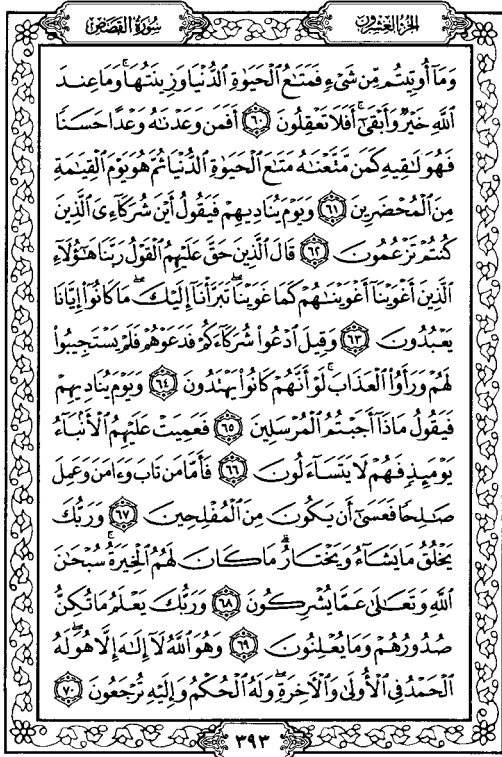 الجزء العشرون
سورة القصص
وَمَآ أُوتِيتُم مِّن شَىْءٍ فَمَتَٰعُ ٱلْحَيَوٰةِ ٱلدُّنْيَا وَزِينَتُهَا ۚ وَمَا عِندَ
ٱللَّهِ خَيْرٌ وَأَبْقَىٰٓ ۚ أَفَلَا تَعْقِلُونَ ٦٠ أَفَمَن وَعَدْنَٰهُ وَعْدًا حَسَنًا
فَهُوَ لَٰقِيهِ كَمَن مَّتَّعْنَٰهُ مَتَٰعَ ٱلْحَيَوٰةِ ٱلدُّنْيَا ثُمَّ هُوَ يَوْمَ ٱلْقِيَٰمَةِ
مِنَ ٱلْمُحْضَرِينَ ٦١ وَيَوْمَ يُنَادِيهِمْ فَيَقُولُ أَيْنَ شُرَكَآءِىَ ٱلَّذِينَ
كُنتُمْ تَزْعُمُونَ ٦٢ قَالَ ٱلَّذِينَ حَقَّ عَلَيْهِمُ ٱلْقَوْلُ رَبَّنَا هَٰٓؤُلَآءِ
ٱلَّذِينَ أَغْوَيْنَآ أَغْوَيْنَٰهُمْ كَمَا غَوَيْنَا ۖ تَبَرَّأْنَآ إِلَيْكَ ۖ مَا كَانُوٓا۟ إِيَّانَا
يَعْبُدُونَ ٦٣ وَقِيلَ ٱدْعُوا۟ شُرَكَآءَكُمْ فَدَعَوْهُمْ فَلَمْ يَسْتَجِيبُوا۟
لَهُمْ وَرَأَوُا۟ ٱلْعَذَابَ ۚ لَوْ أَنَّهُمْ كَانُوا۟ يَهْتَدُونَ ٦٤ وَيَوْمَ يُنَادِيهِمْ
فَيَقُولُ مَاذَآ أَجَبْتُمُ ٱلْمُرْسَلِينَ ٦٥ فَعَمِيَتْ عَلَيْهِمُ ٱلْأَنۢبَآءُ
يَوْمَئِذٍ فَهُمْ لَا يَتَسَآءَلُونَ ٦٦ فَأَمَّا مَن تَابَ وَءَامَنَ وَعَمِلَ
صَٰلِحًا فَعَسَىٰٓ أَن يَكُونَ مِنَ ٱلْمُفْلِحِينَ ٦٧ وَرَبُّكَ
يَخْلُقُ مَا يَشَآءُ وَيَخْتَارُ ۗ مَا كَانَ لَهُمُ ٱلْخِيَرَةُ ۚ سُبْحَٰنَ
ٱللَّهِ وَتَعَٰلَىٰ عَمَّا يُشْرِكُونَ ٦٨ وَرَبُّكَ يَعْلَمُ مَا تُكِنُّ
صُدُورُهُمْ وَمَا يُعْلِنُونَ ٦٩ وَهُوَ ٱللَّهُ لَآ إِلَٰهَ إِلَّا هُوَ ۖ لَهُ
ٱلْحَمْدُ فِى ٱلْأُولَىٰ وَٱلْءَاخِرَةِ ۖ وَلَهُ ٱلْحُكْمُ وَإِلَيْهِ تُرْجَعُونَ ٧٠
٣٩٣